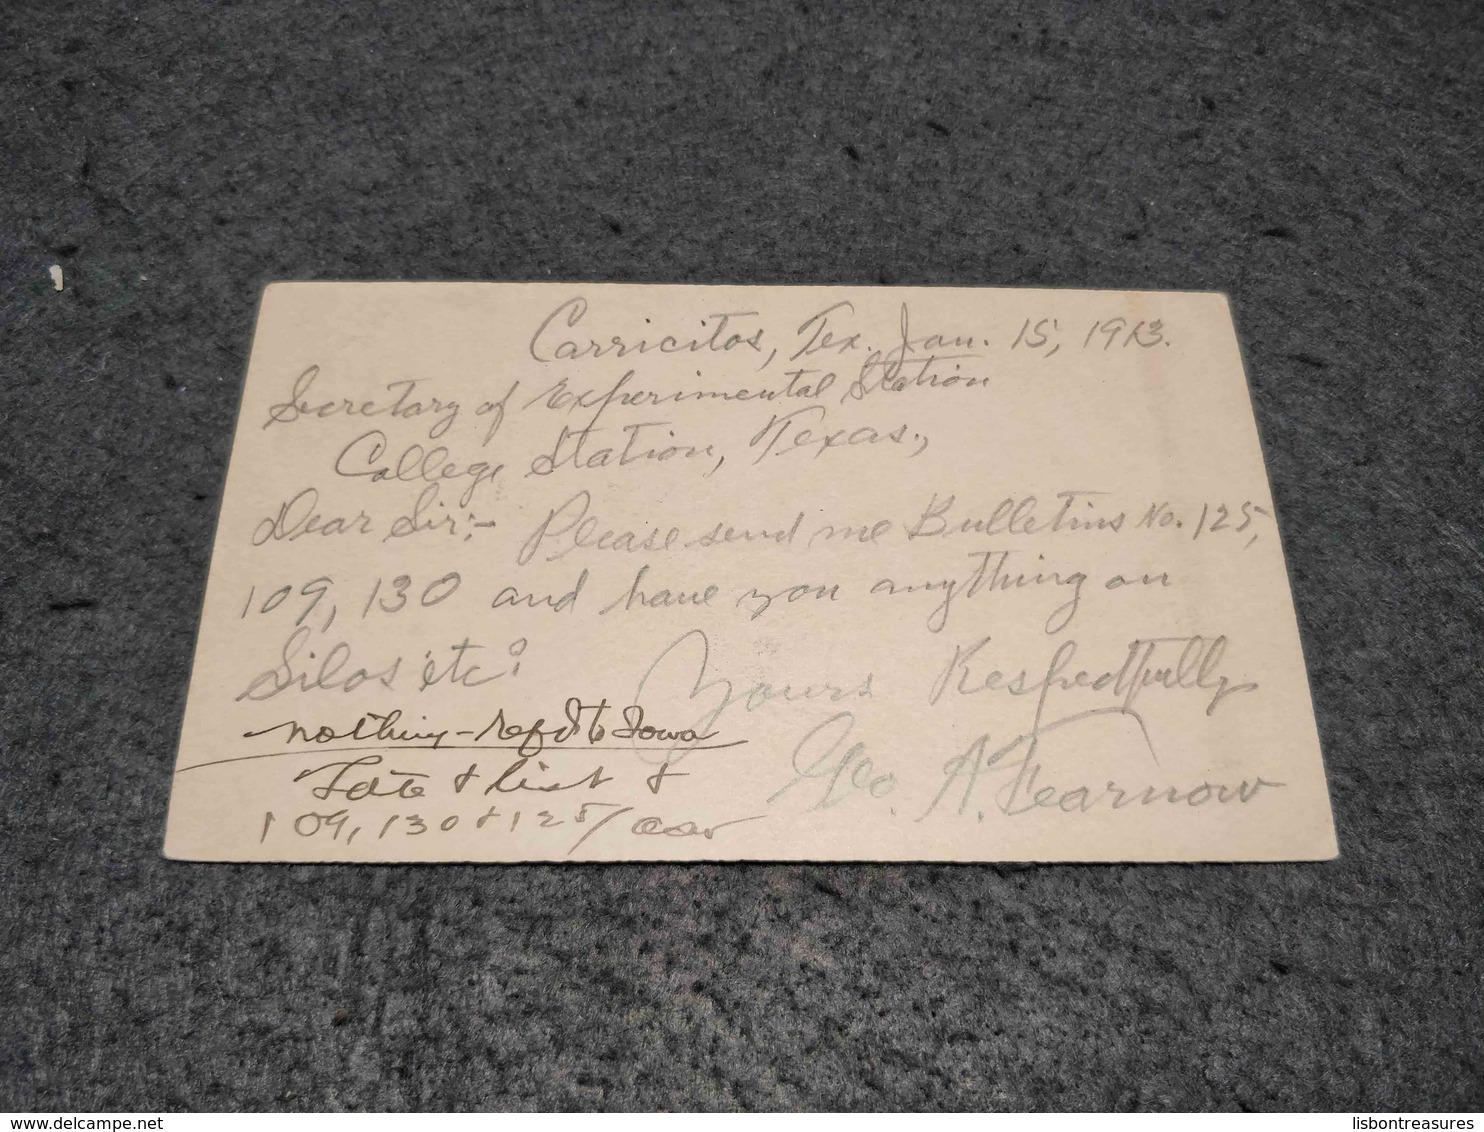 Carricitos, Tex. Jan. 15, 1913.
Secretary of Experimental Station
College Station, Texas.,
Dear Sir:- Please send me Bulletins No. 125,
109, 130 and have you anything on
Silos etc?
Yours Respectfully
Geo. A. Tearnow
nothing - ref'd to Iowa
& list &
109, 130 & 125/
delcampe.net
lisbontreasures